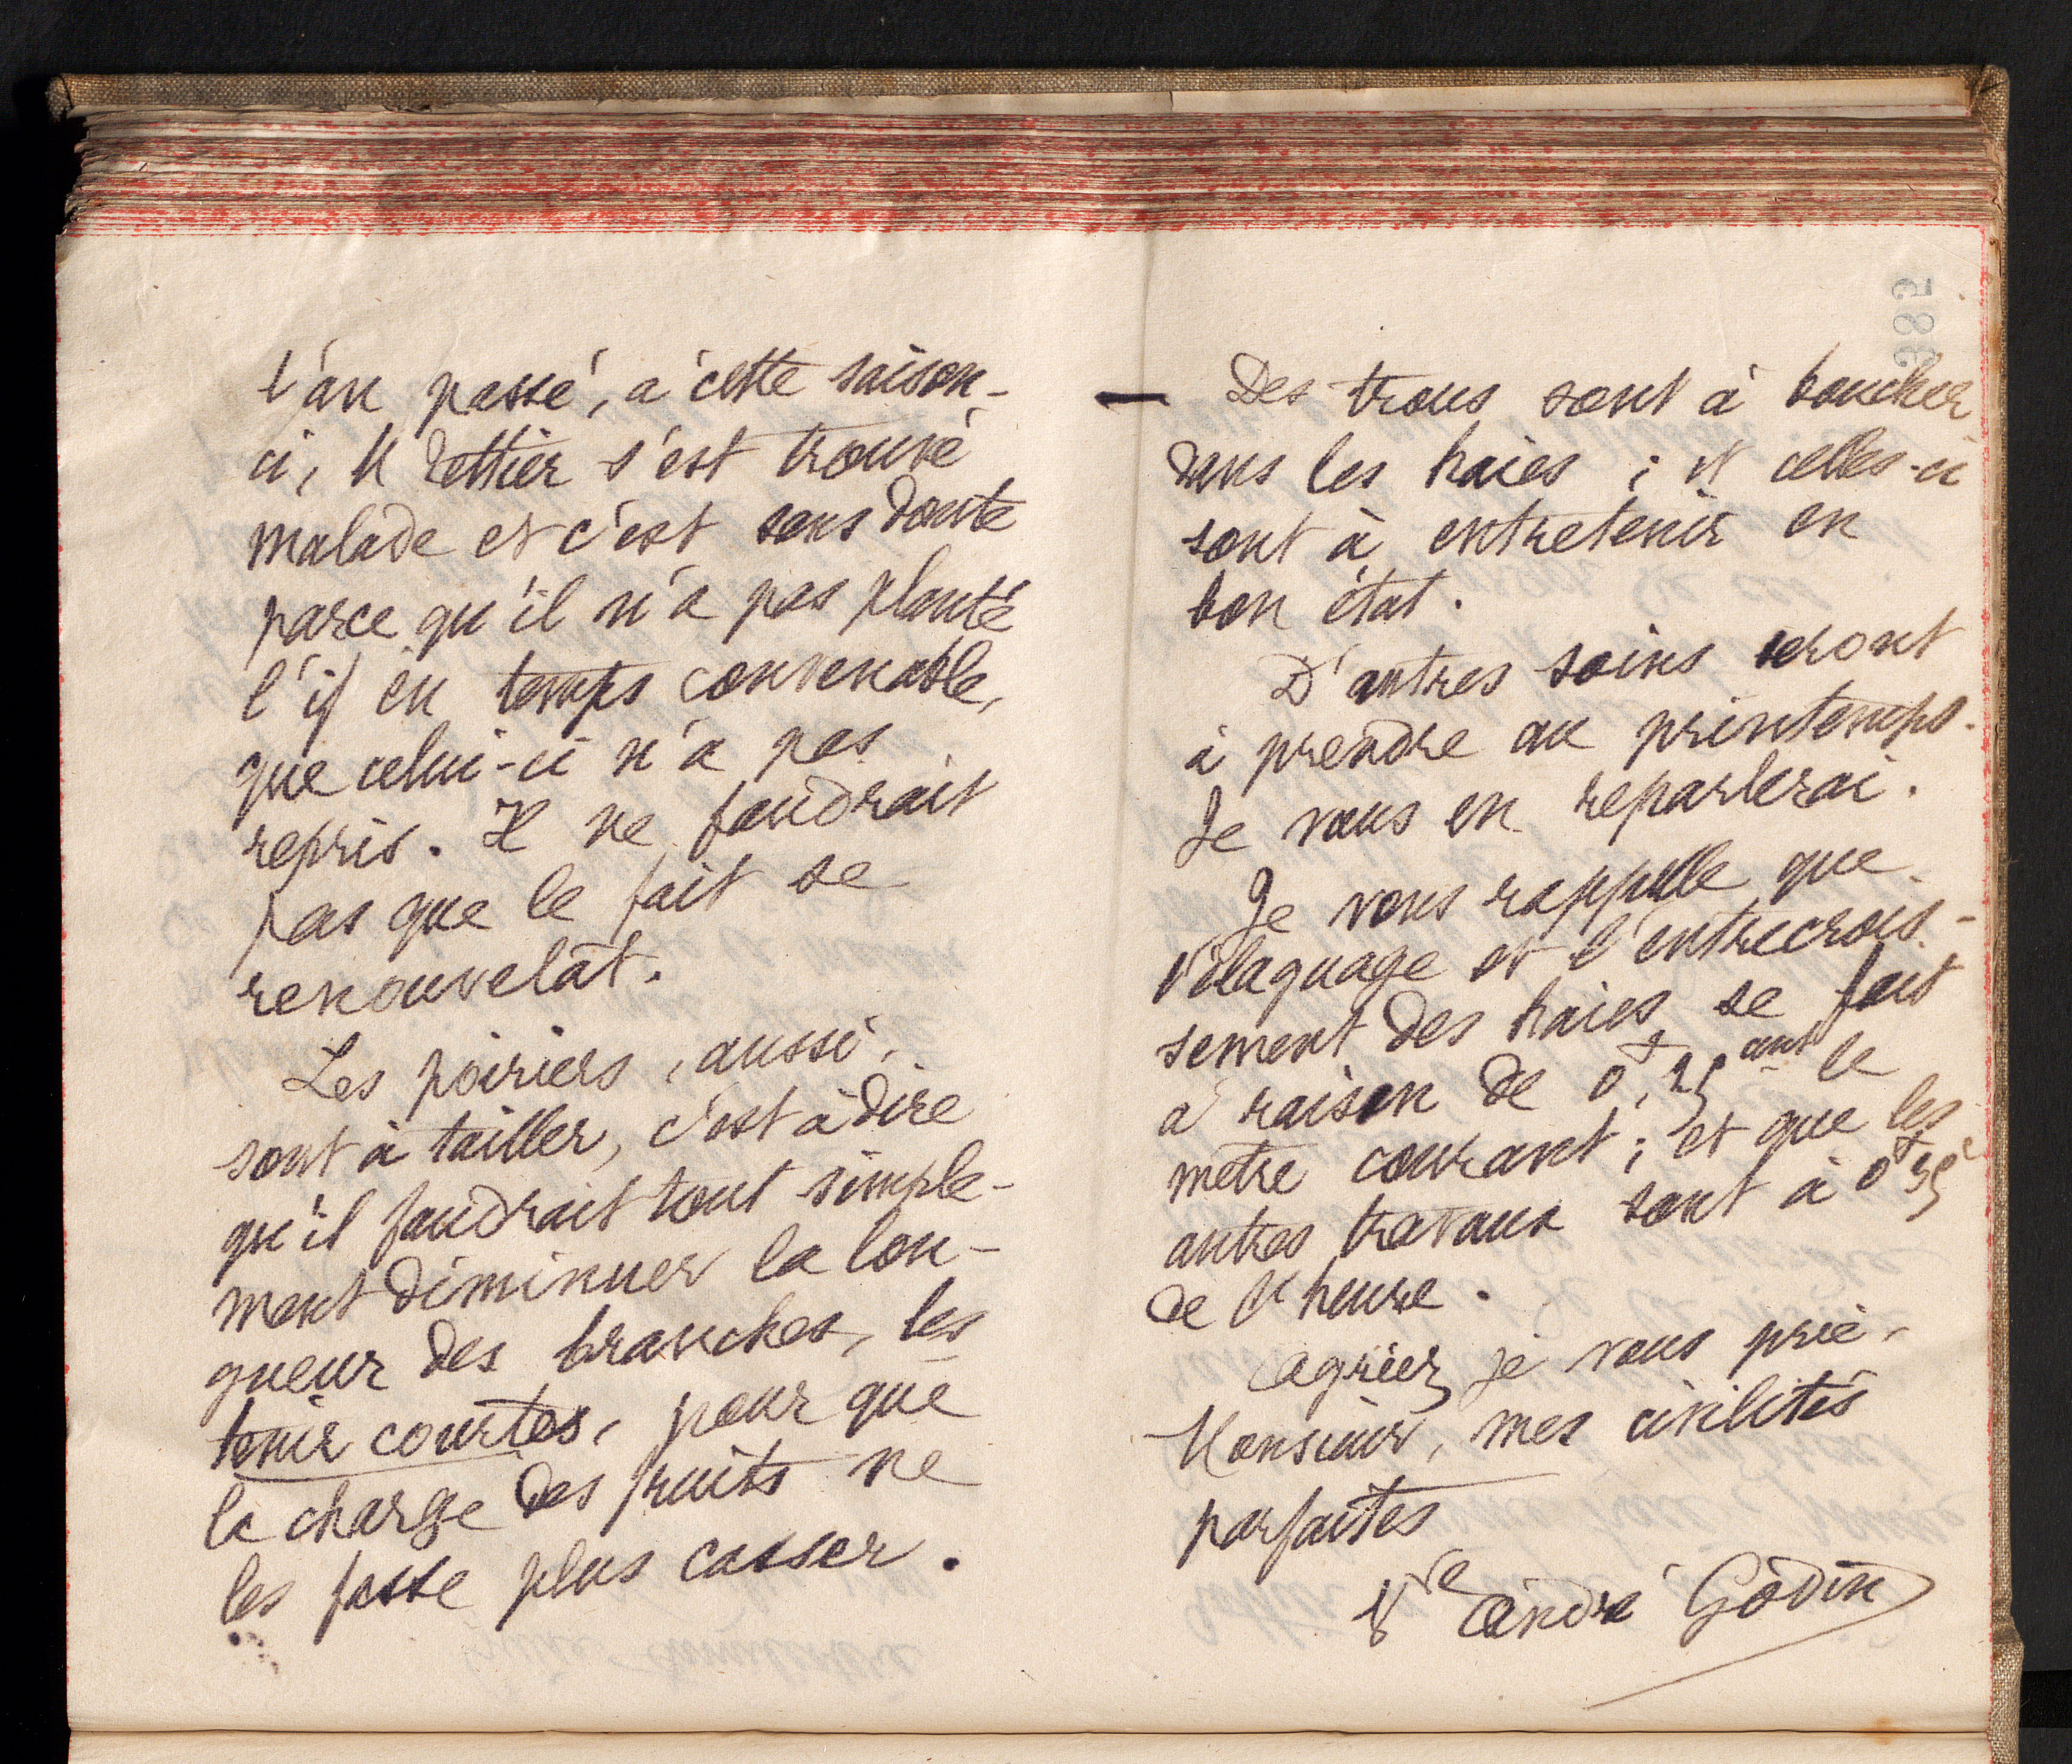 L'an passé, à cette saison-
ci, M Rettier s'est trouvé
malade et c'est sans doute
parce qu'il n'a pas planté
l'if en temps convenable,
que celui-ci n'a pas
repris. Il ne faudrait
pas que le fait se
renouvelât.
Les poiriers, aussi,
sont à tailler, c'est à dire
qu'il faudrait tout simple-
ment diminuer la lon-
gueur des branches, les
tenir courtes, pour que
la charge des fruits ne
les fasse plus casser.
385
— Des trous sont à boucher
dans les haies ; et celles-ci
sont à entretenir en
bon état.
D'autres soins seront
à prendre au printemps.
Je vous en reparlerai.
Je vous rappelle que
l'élaguage et l'entrecrois-
sement des haies se fait
à raison de 0f,25 cent le
mètre courant ; et que les
autres travaux sont à 0f35c
de l'heure.
Agréez, je vous prie,
Monsieur, mes civilités
parfaites
Vve André Godin